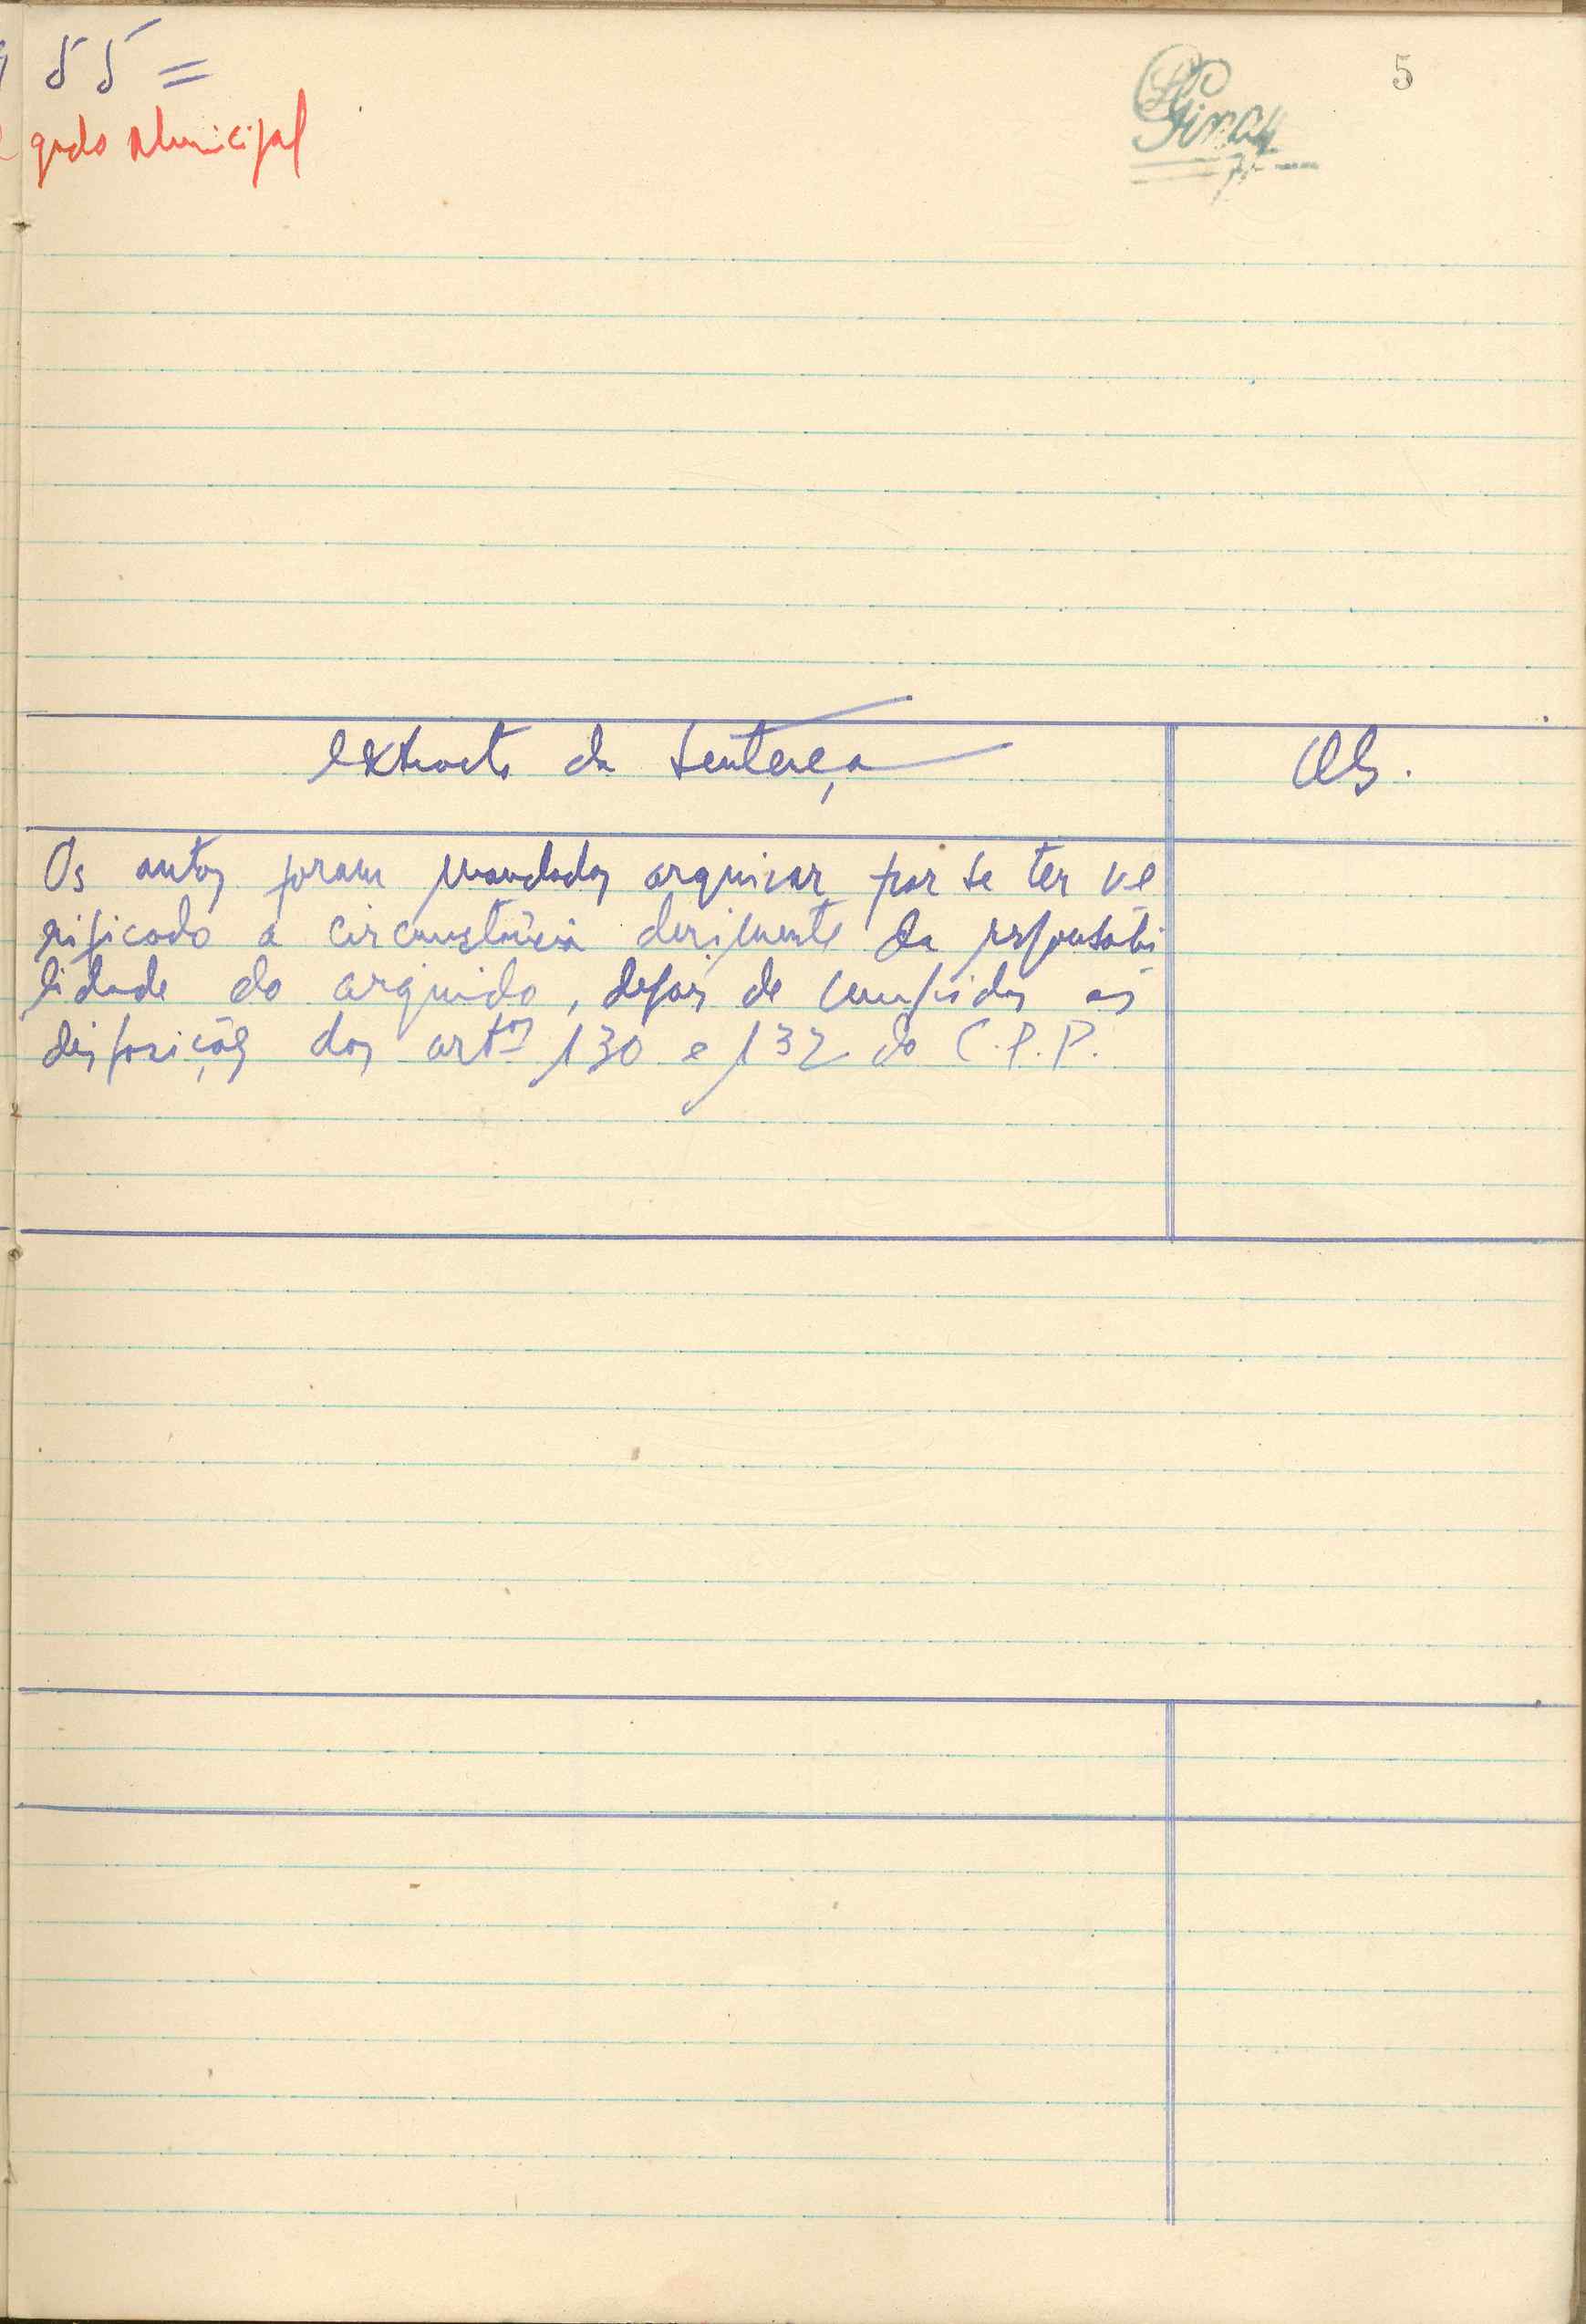 55 =
5
gado Municipal
extracto da sentença
Obs.
Os autos foram mandados arquivar por se ter ve
rificado a circunstância dirimente da responsabi
lidade do arguido, depois de cumpridas as
disposições dos artos 130 e 132 do C.P.P.